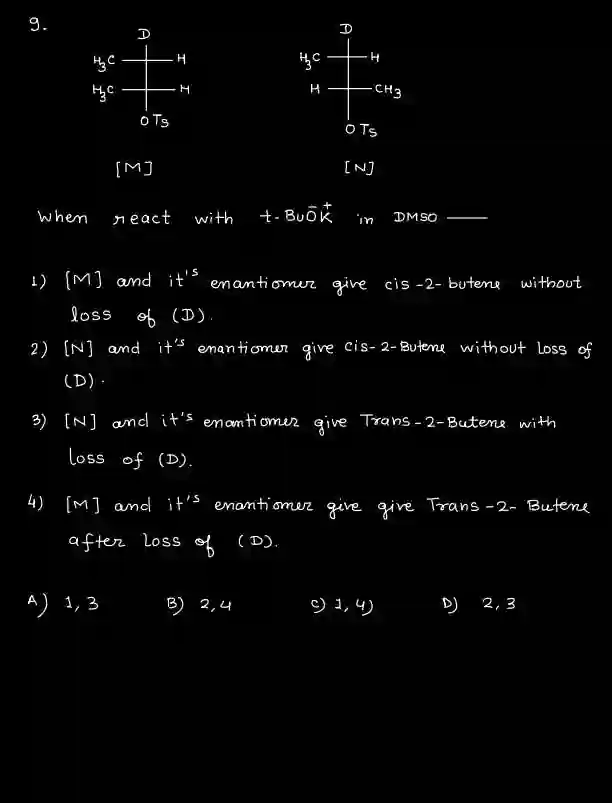 9.
D D
H3C H H3C H
H3C H H CH3
OTs OTs
[M] [N]
When react with t-BuO⁻K⁺ in DMSO ——
1) [M] and it's enantiomer give cis-2-butene without
loss of (D).
2) [N] and it's enantiomer give cis-2-Butene without loss of
(D).
3) [N] and it's enantiomer give Trans-2-Butene with
loss of (D).
4) [M] and it's enantiomer give give Trans-2-Butene
after loss of (D).
A) 1, 3 B) 2, 4 C) 1, 4) D) 2, 3